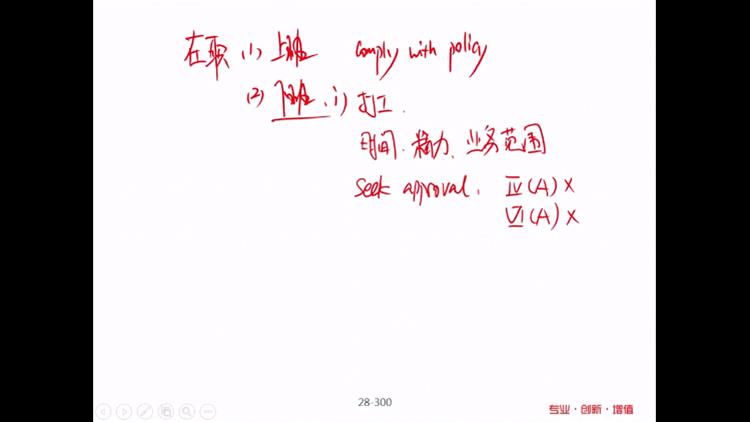 在职 (1) 上班 comply with policy
(2) 下班. i) 打工.
时间. 精力. 业务范围
Seek approval. IV(A) ×
VI(A) ×
28-300
专业·创新·增值